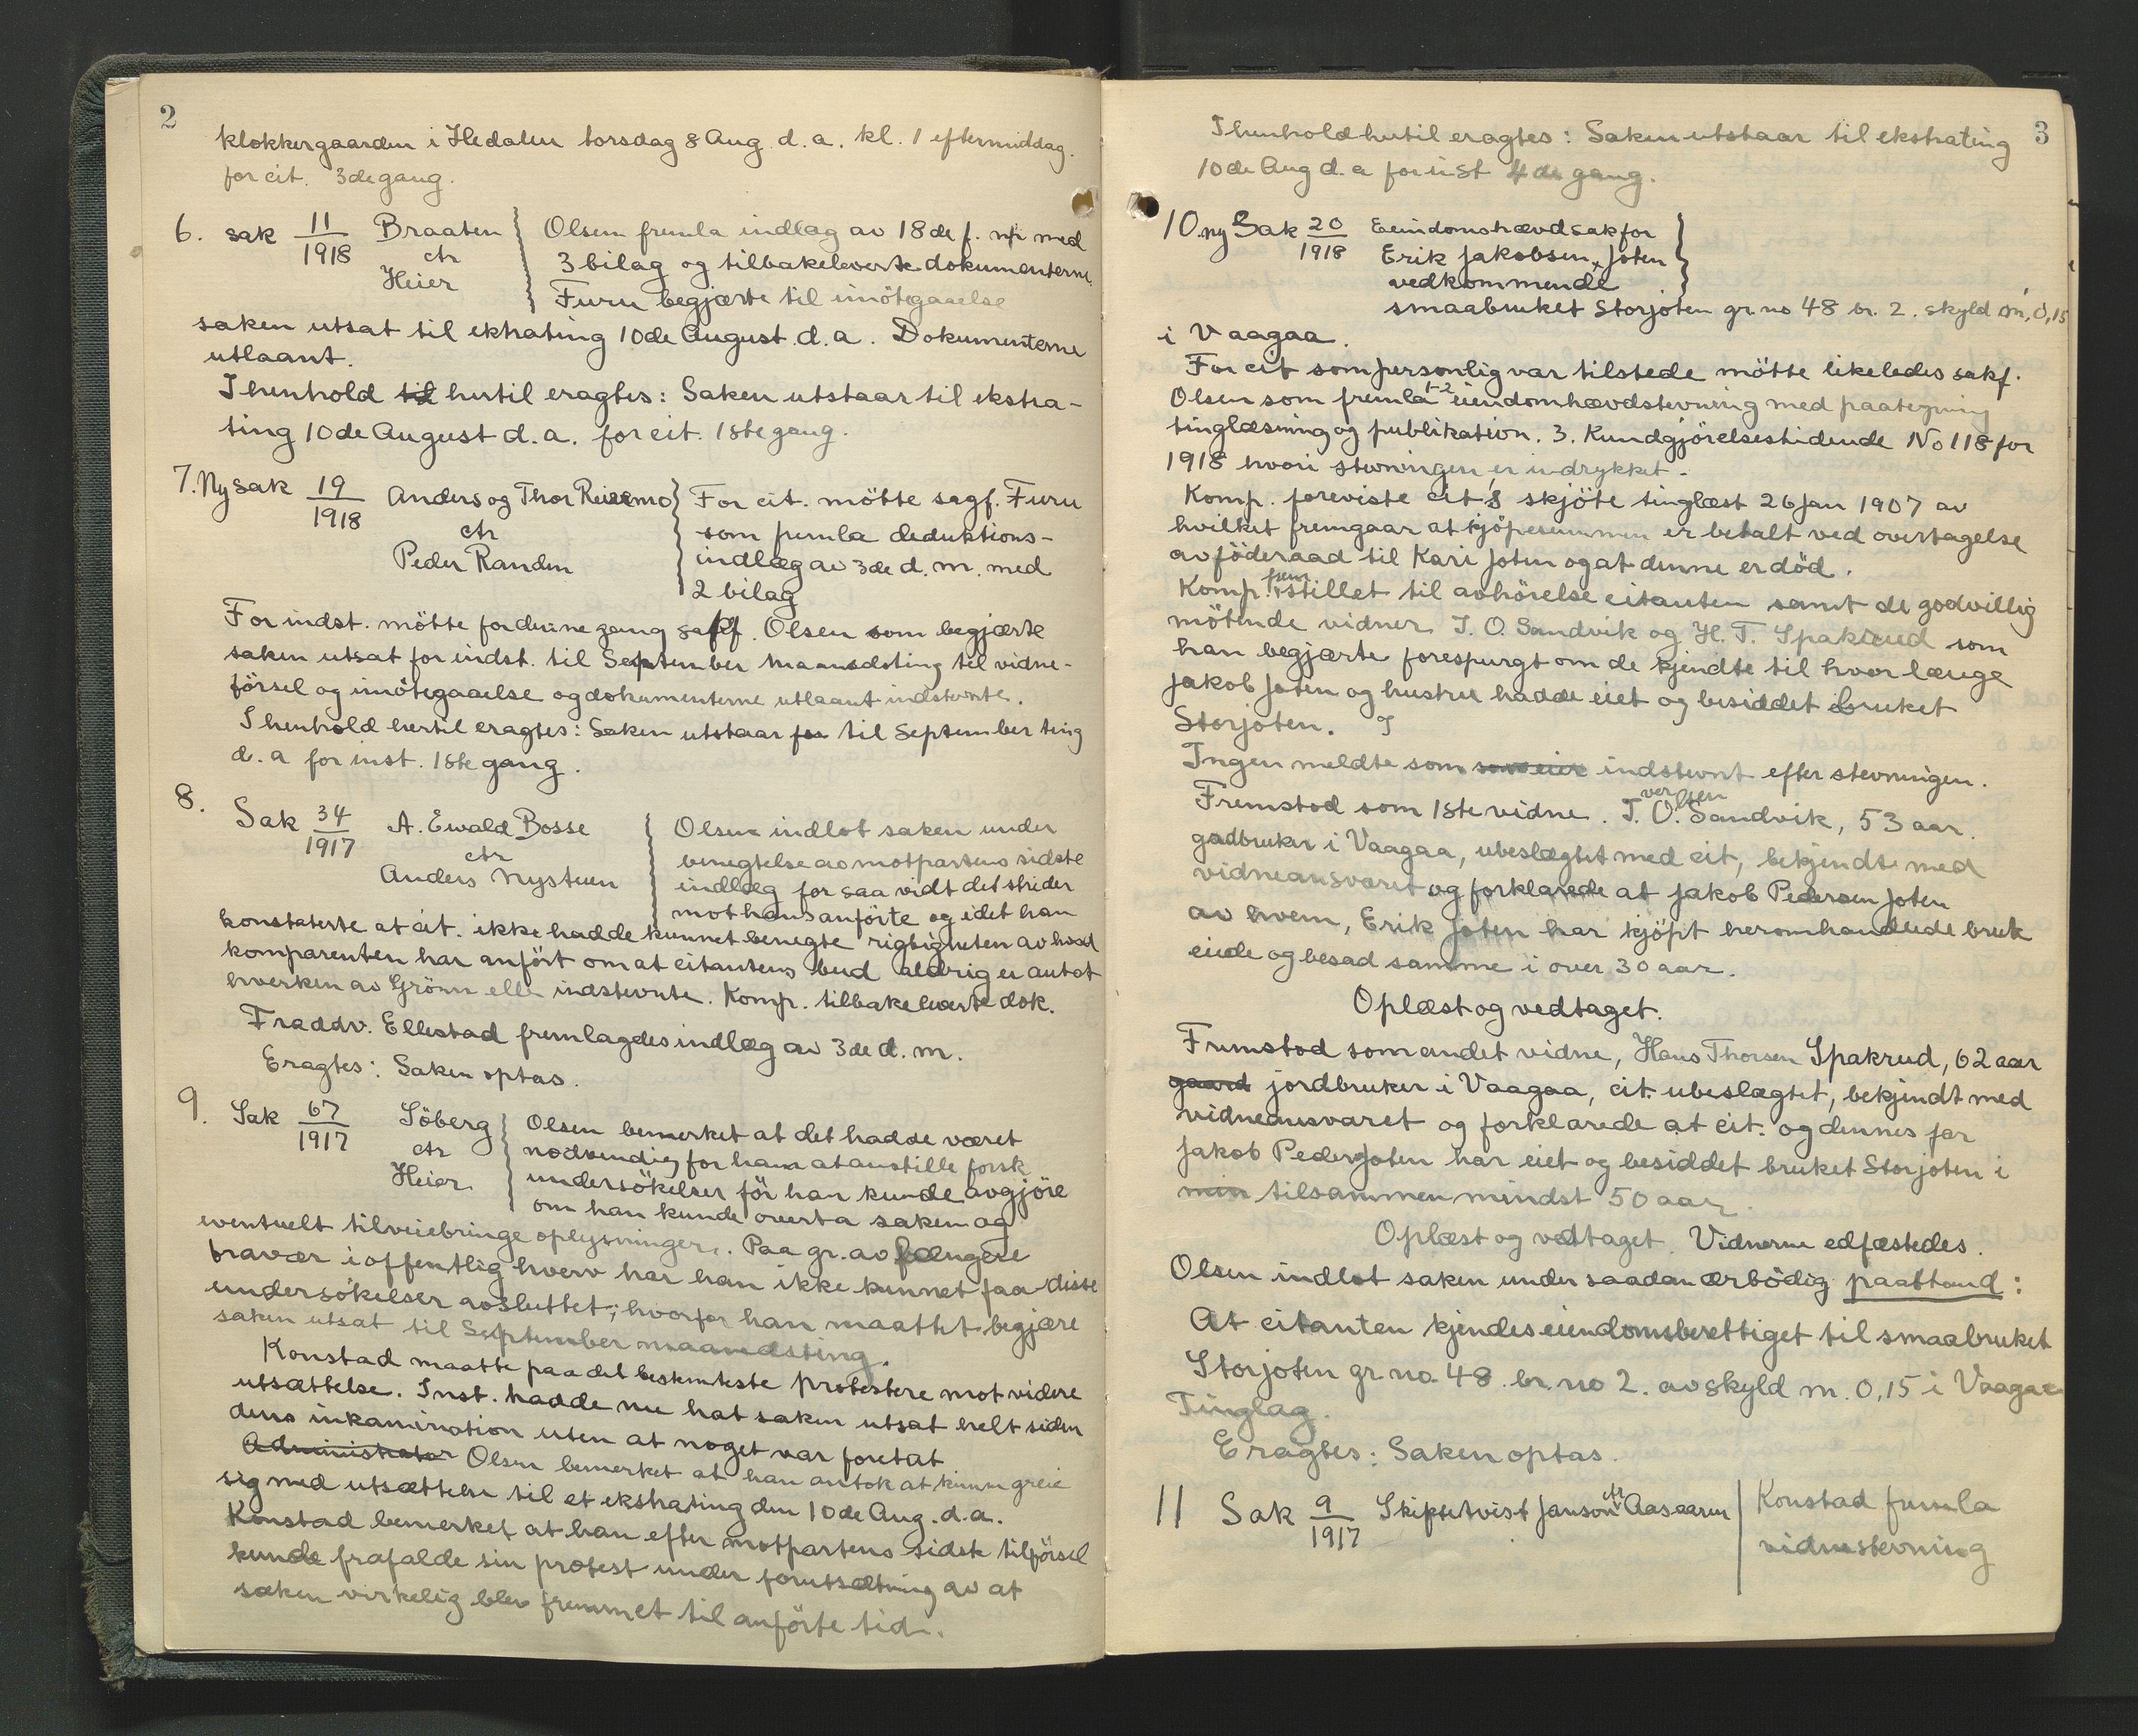 2
klokkergaarden i Hedalen torsdag 8 Aug. d. a. kl. 1 eftermiddag.
for cit. 3de gang.
6. sak 11/1918 Braaten ctr Heier
Olsen fremla indlæg av 18de f. m. med
3 bilag og tilbakeleverte dokumenterne.
Furu begjærte til imötegaaelse
saken utsat til ekstrating 10de August d. a. Dokumenterne
utlaant.
I henhold til hertil eragtes: Saken utstaar til ekstra-
ting 10de August d. a. for cit. 1ste gang.
7. Ny sak 19/1918 Anders og Thor Reiremo ctr Peder Randen
For cit. mötte sagf. Furu
som fremla deduktions-
indlæg av 3de d. m. med
2 bilag
For indst. mötte for denne gang sakf. Olsen som begjærte
saken utsat for indst. til September maanedsting til vidne-
försel og imötegaaelse og dokumenterne utlaant indstevnte.
I henhold hertil eragtes: Saken utstaar for til September ting
d. a for inst. 1ste gang.
8. Sak 34/1917 A. Ewald Bosse ctr Anders Nysteen
Olsen indlot saken under
benegtelse av motpartens sidste
indlæg for saa vidt det strider
mot hans anförte og idet han
konstaterte at cit. ikke hadde kunnet benegte rigtigheten av hvad
komparenten har anfört om at citantens bud aldrig er antat
hverken av Grönn eller indstevnte. Komp. tilbakeleverte dok.
Fra adv. Ellestad fremlagdes indlæg av 3de d. m.
Eragtes: Saken optas.
9. Sak 67/1917 Söberg ctr Heier
Olsen bemerket at det hadde været
nodvendig for ham at anstille forsk
undersökelser för han kunde avgjöre
om han kunde overta saken og
eventuelt tilveiebringe oplysninger. Paa gr. av længere
fravær i offentlig hverv har han ikke kunnet faa disse
undersökelser avsluttet; hvorfor han maattet begjære
saken utsat til September maanedsting.
Konstad maatte paa det bestemteste protestere mot videre
utsættelse. Inst. hadde nu hat saken utsat helt siden
dens inkamination uten at noget var foretat
Administrator Olsen bemerket at han antok at kunne greie
sig med utsættelse til et ekstrating den 10de Aug. d. a.
Konstad bemerket at han efter motpartens sidste tilförsel
kunde frafalde sin protest under forutsætning av at
saken virkelig blev fremmet til anförte tid.
3
I henhold hertil eragtes: Saken utstaar til ekstrating
10de Aug d. a for inst 4de gang.
10. ny Sak 20/1918 Eeindomshævdsak for
Erik Jakobsen Joten
vedkommende
smaabruket Storjoten gr. no 48 br. 2. skyld m, 0,15
i Vaagaa.
For cit som personlig var tilstede mötte likeledes sakf.
Olsen som fremla 1-2 eiendomhævdstevning med paategning
tinglæsning og publikation. 3. Kundgjörelsestidende No 118 for
1918 hvori stevningen er indrykket.
Komp. foreviste cit s skjöte tinglæst 26 Jan 1907 av
hvilket fremgaar at kjöpesummen er betalt ved overtagelse
av föderaad til Kari Joten og at denne er död.
Komp. fremstillet til avhörelse citanten samt de godvillig
mötende vidner T. O. Sandvik og H. T. Spakrud som
han begjærte forespurgt om de kjendte til hvor længe
Jakob Joten og hustru hadde eiet og besiddet bruket
Storjoten. I
Ingen meldte som som eier indstevnt efter stevningen.
Fremstod som 1ste vidne. T. O. Sandvik, 53 aar.
gadbruker i Vaagaa, ubeslægtet med cit, bekjendt med
vidneansvaret og forklarede at Jakob Pedersen Joten
av hvem, Erik Joten har kjöpt heromhandlede bruk
eiede og besad samme i over 30 aar.
Oplæst og vedtaget.
Fremstod som andet vidne, Hans Thorsen Spakrud, 62 aar
gaard jordbruker i Vaagaa, cit. ubeslægtet, bekjendt med
vidneansvaret og forklarede at cit. og dennes far
Jakob Peders Joten har eiet og besiddet bruket Storjoten i
min tilsammen mindst 50 aar.
Oplæst og vedtaget. Vidnerne edfæstedes.
Olsen indlot saken under saadan ærbödig paastand:
At citanten kjendes eiendomsberettiget til smaabruket
Storjoten gr. no. 48 br. no 2. av skyld m. 0,15 i Vaagaa
Tinglag.
Eragtes: Saken optas.
11 Sak 9/1917 Skiftetvist Janson ctr Aasaaren
Konstad fremla
vidnestevning